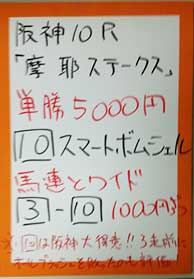 阪神10R
「摩耶ステークス」
単勝5000円
10 スマートボムシェル
馬連とワイド
3-10 1000円ずつ
※10は阪神大得意!! 3走前に
オルブッシュを破ったのも評価!